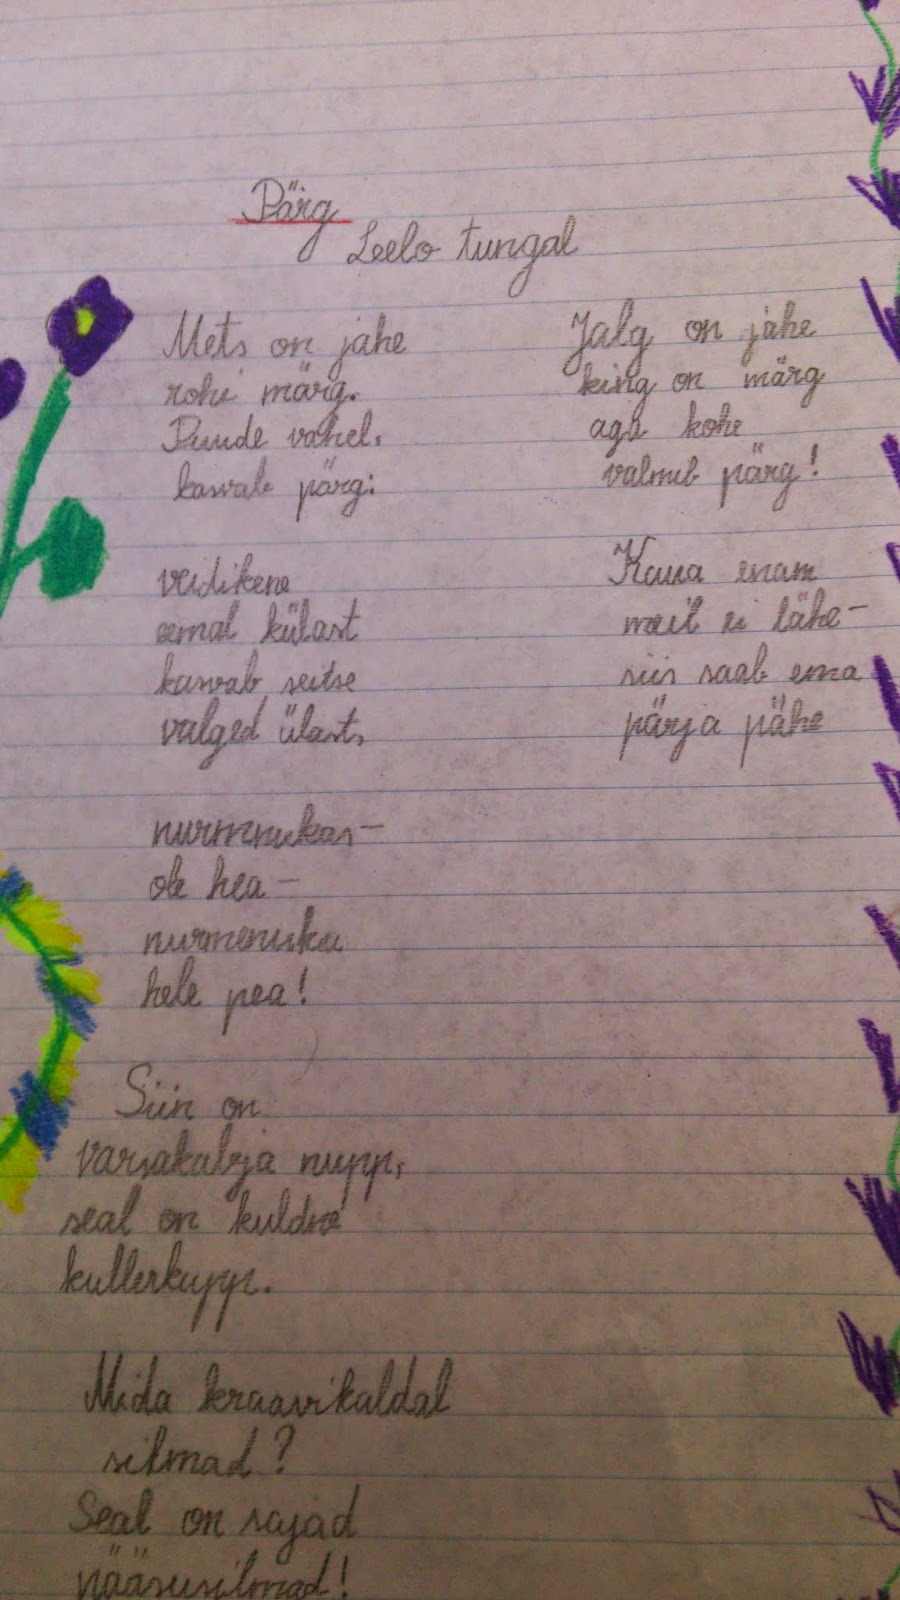 Pärg
Leelo tungal
Mets on jahe
rohi märg.
Puude vahel,
kasvab pärg:
veidikene
eemal külast
kasvab seitse
valged ülast,
nurmnukas—
ole hea—
nurmenuku
hele pea!
Siin on
varsakabja nupp,
seal on kuldne
kullerkupp.
Mida kraavikaldal
silmad?
Seal on sajad
nääsusilmad!
Jalg on jahe
king on märg
aga kohe
valmib pärg!
Kaua enam
meil ei lähe—
siis saab ema
pärja pähe